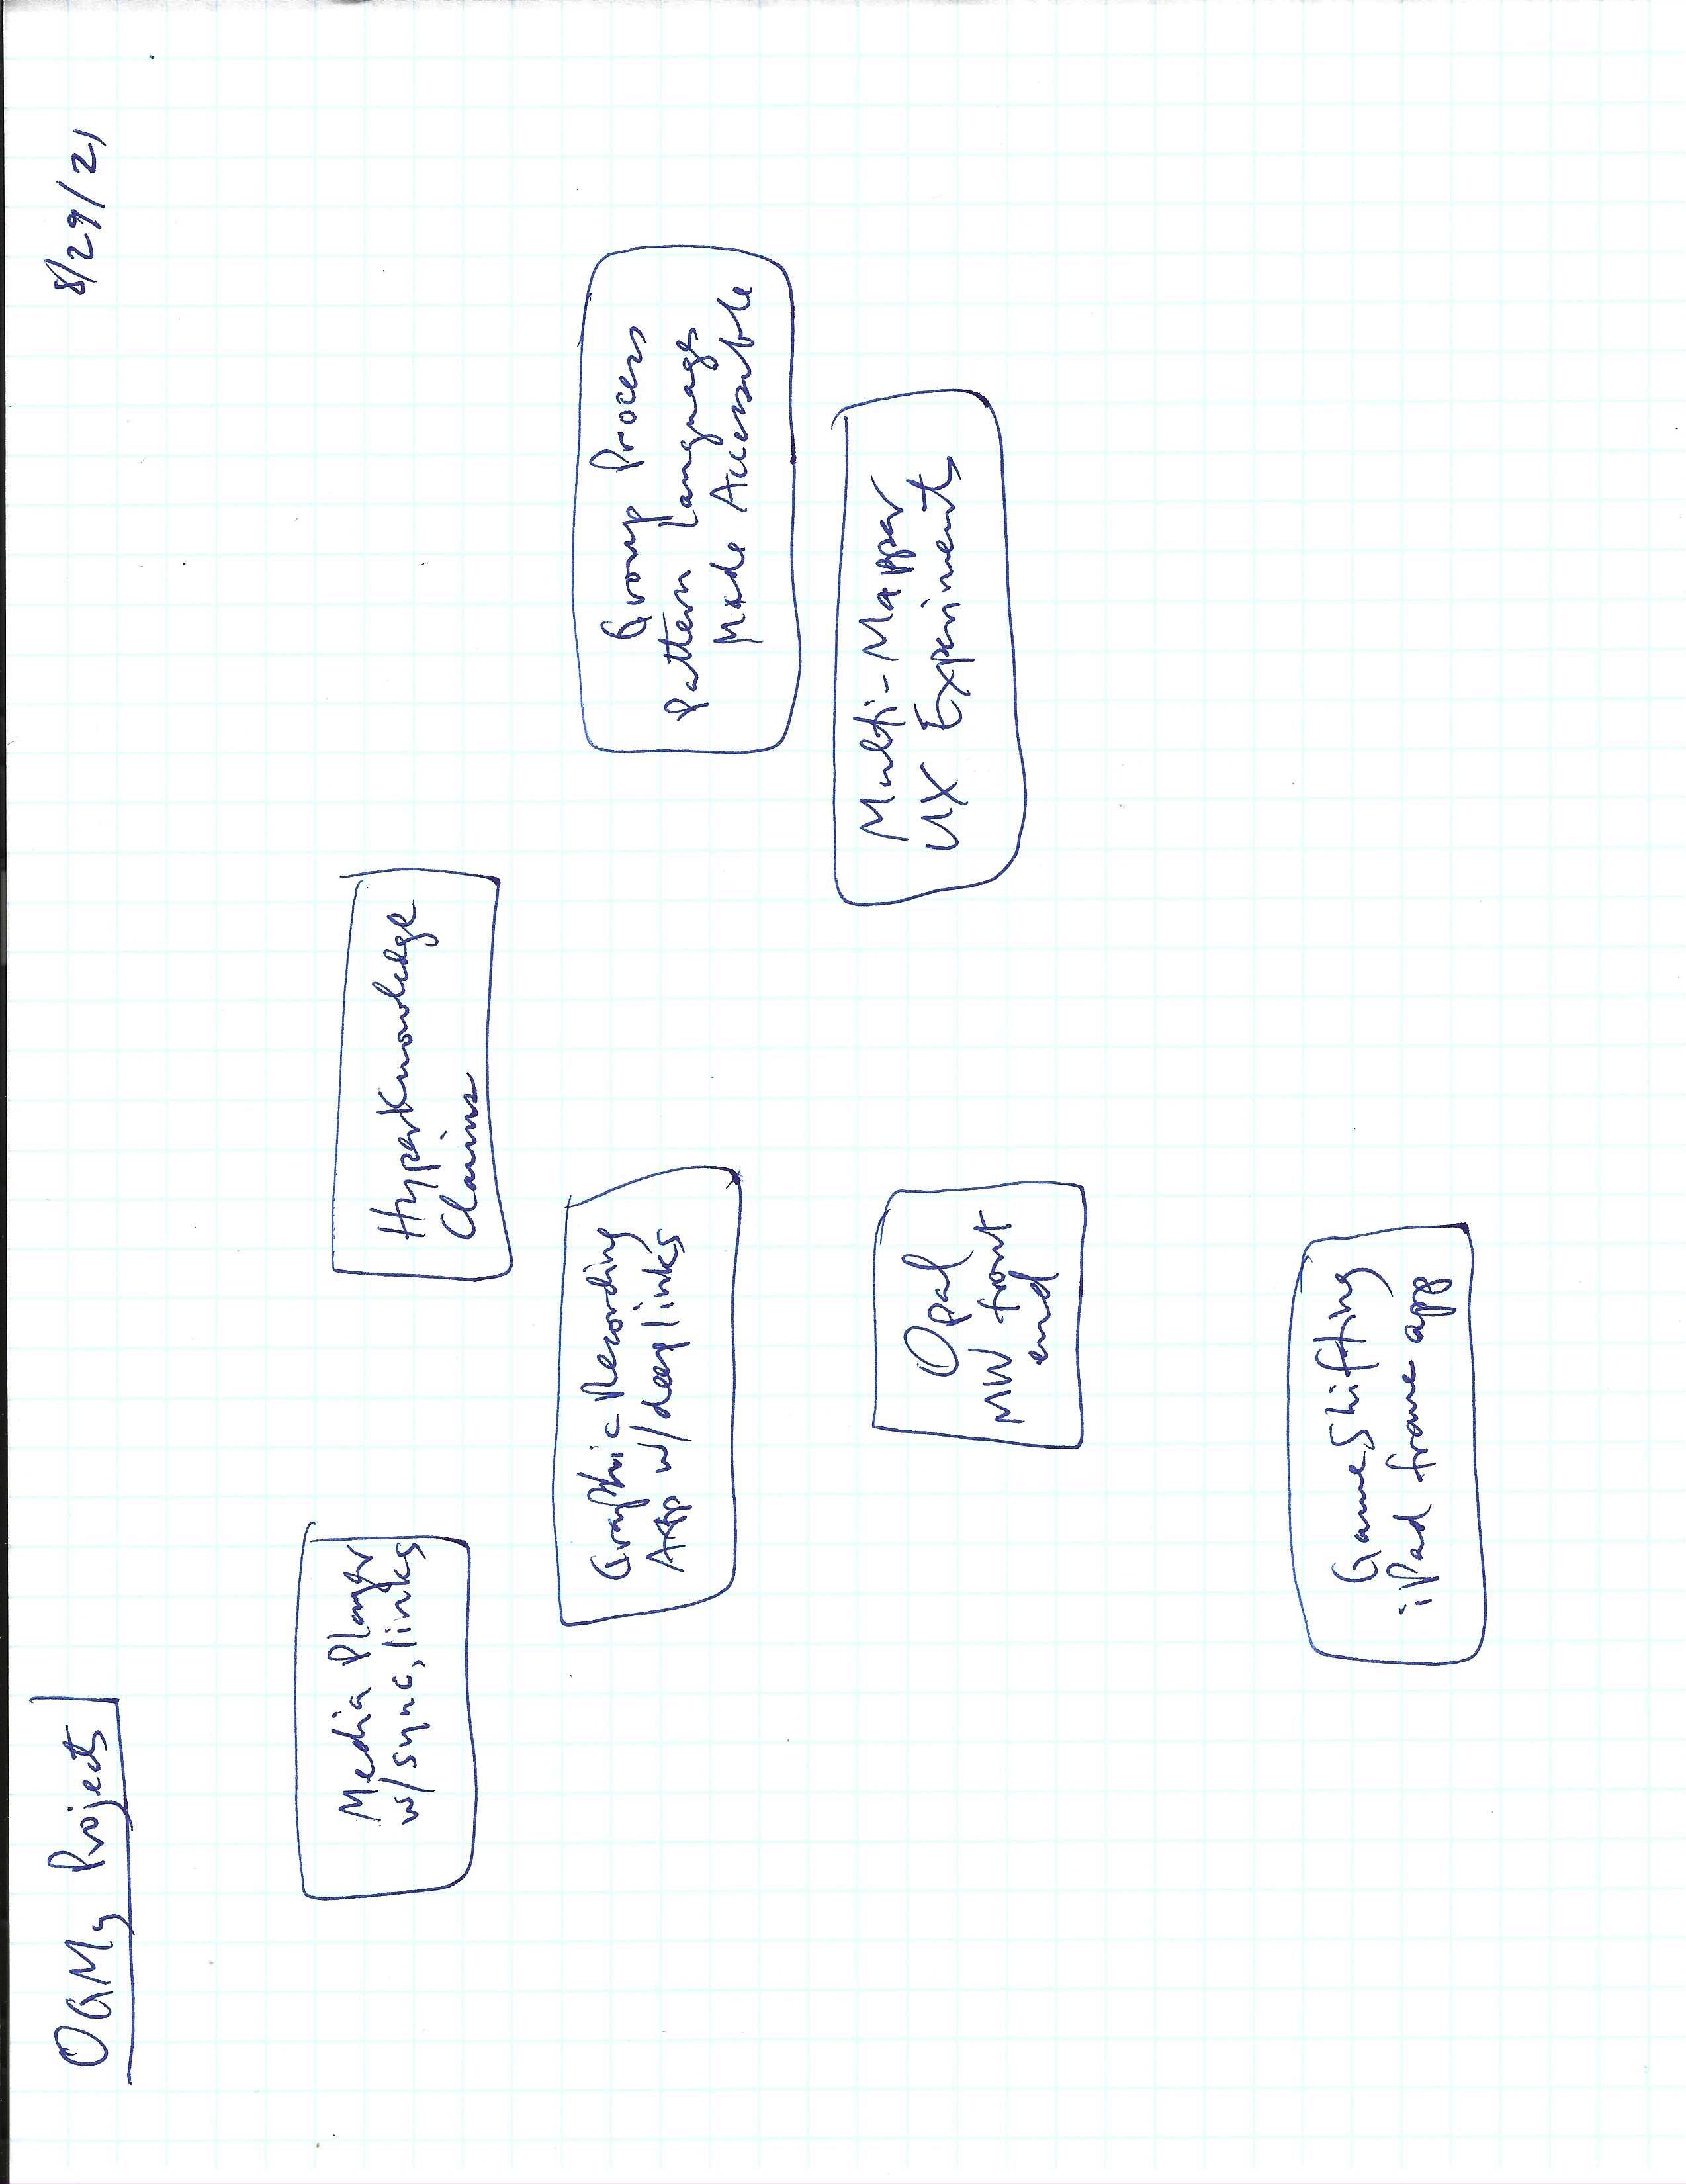 OGMy Projects
8/29/21
Media Player
w/sync, links
HyperKnowledge
Claims
Graphic Recording
App w/deep links
Group Process
Pattern Languages
Made Accessible
Opal
MW front
end
Multi-Mapper
UX Experiments
GameShifting
iPad frame app